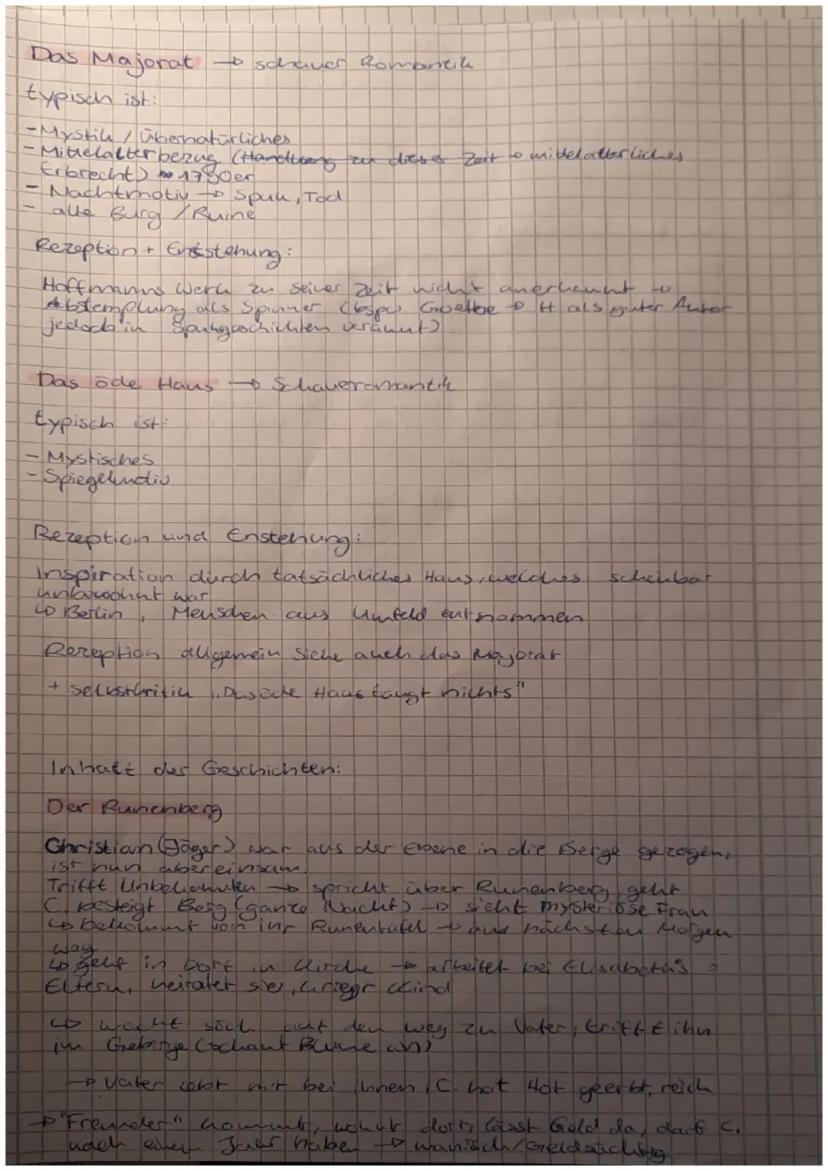 Das Majorat → schauer Romantik
typisch ist:
- Mystik / Übernatürliches
- Mittelalterbezug (Handlung zu dieser Zeit → mittelalterliches
Erbrecht) 1790er
- Nachtmotiv → Spuk, Tod
- alte Burg / Ruine
Rezeption + Entstehung:
Hoffmanns Werk zu seiner Zeit nicht anerkannt →
Abstemplung als Spinner (bspw. Goethe → H als guter Autor
jedoch in Spukgeschichten verrannt)
Das öde Haus → Schauerromantik
typisch ist:
- Mystisches
- Spiegelmotiv
Rezeption und Enstehung:
Inspiration durch tatsächliches Haus, welches scheinbar
unbewohnt war
↳ Berlin, Menschen aus Umfeld entnommen
Rezeption allgemein siehe auch das Majorat
+ selbstkritik „Das öde Haus taugt nichts"
Inhalt der Geschichten:
Der Runenberg
Christian (Jäger) war aus der Ebene in die Berge gezogen,
ist nun aber einsam
Trifft Unbekannten → spricht über Runenberg, geht
C. besteigt Berg (ganze Nacht) → sieht mysteriöse Frau
↳ bekommt von ihr Runentafel → am nächsten Morgen
weg
↳ geht in Dorf in Kirche → arbeitet bei Elisabeths
Eltern, heiratet sie, kriegt Kind
↳ macht sich auf den weg zu Vater, trifft ihn
im Gebirge (schaut Blume an)
→ Vater lebt mit bei ihnen, C. hat Hof geerbt, reich
→ "Fremder" kommt, wohnt dort, lässt Geld da, darf C.
nach einem Jahr haben → wahnisch/Geldsüchtig